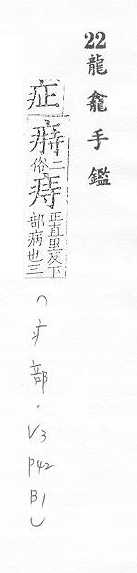 22 龍龕手鑑
症
二俗
痔
正直里反下
部病也三
(疒部.V3 P42 B1)